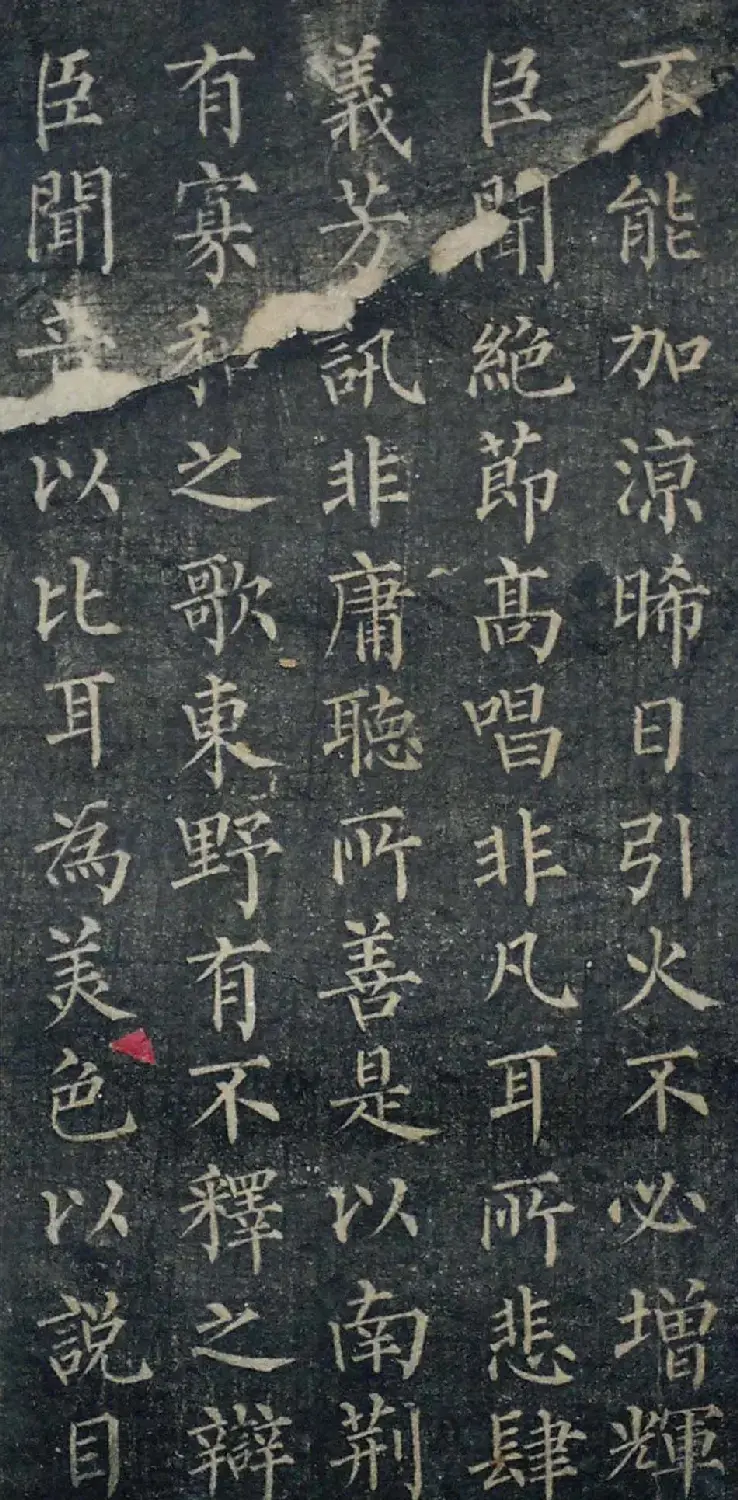 不能加涼晞日引火不必增輝
臣聞絶節髙唱非凡耳所悲肆
義芳訊非庸聽所善是以南荊
有寡和之歌東野有不釋之辯
臣聞音以比耳為美色以說目